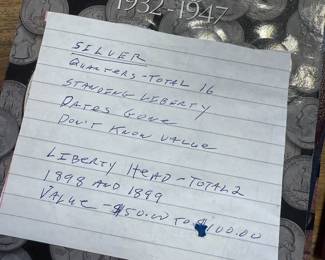 1932-1947
SILVER
QUARTERS - TOTAL 16
STANDING LIBERTY
DATES GONE
DON'T KNOW VALUE
LIBERTY HEAD - TOTAL 2
1898 AND 1899
VALUE - $50.00 TO $100.00